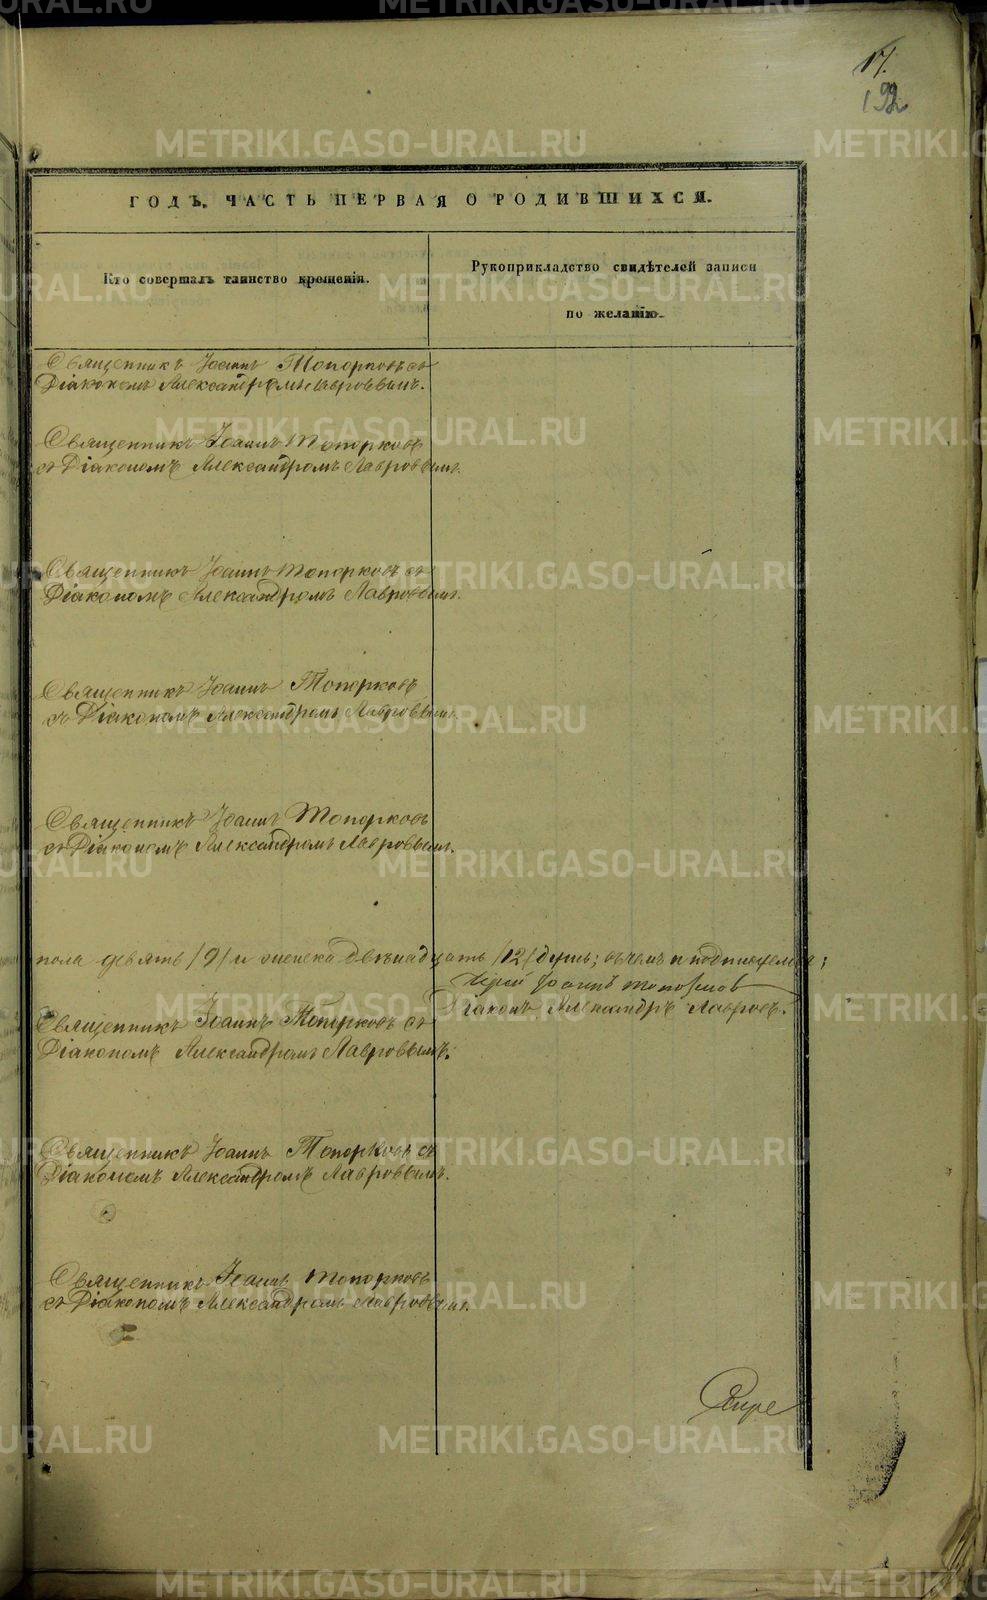 17.
192
ГОДЪ. ЧАСТЬ ПЕРВАЯ О РОДИВШИХСЯ.
Кто совершалъ таинство крещенія.
Рукоприкладство свидѣтелей записи
по желанію.
Священникъ Іоаннъ Топорковъ съ
Діакономъ Александромъ Лавровымъ.
Священникъ Іоаннъ Топорковъ
съ Діакономъ Александромъ Лавровымъ.
Священникъ Іоаннъ Топорковъ съ
Діакономъ Александромъ Лавровымъ.
Священникъ Іоаннъ Топорковъ
съ Діакономъ Александромъ Лавровымъ.
Священникъ Іоаннъ Топорковъ
съ Діакономъ Александромъ Лавровымъ.
пола девять /9/ и женска двѣнадцать /12/ душъ; въ чемъ и подписуемся;
Іерей Іоаннъ Топорковъ
Діаконъ Александръ Лавровъ.
Священникъ Іоаннъ Топорковъ съ
Діакономъ Александромъ Лавровымъ.
Священникъ Іоаннъ Топорковъ съ
Діакономъ Александромъ Лавровымъ.
Священникъ Іоаннъ Топорковъ
съ Діакономъ Александромъ Лавровымъ.
METRIKI.GASO-URAL.RU